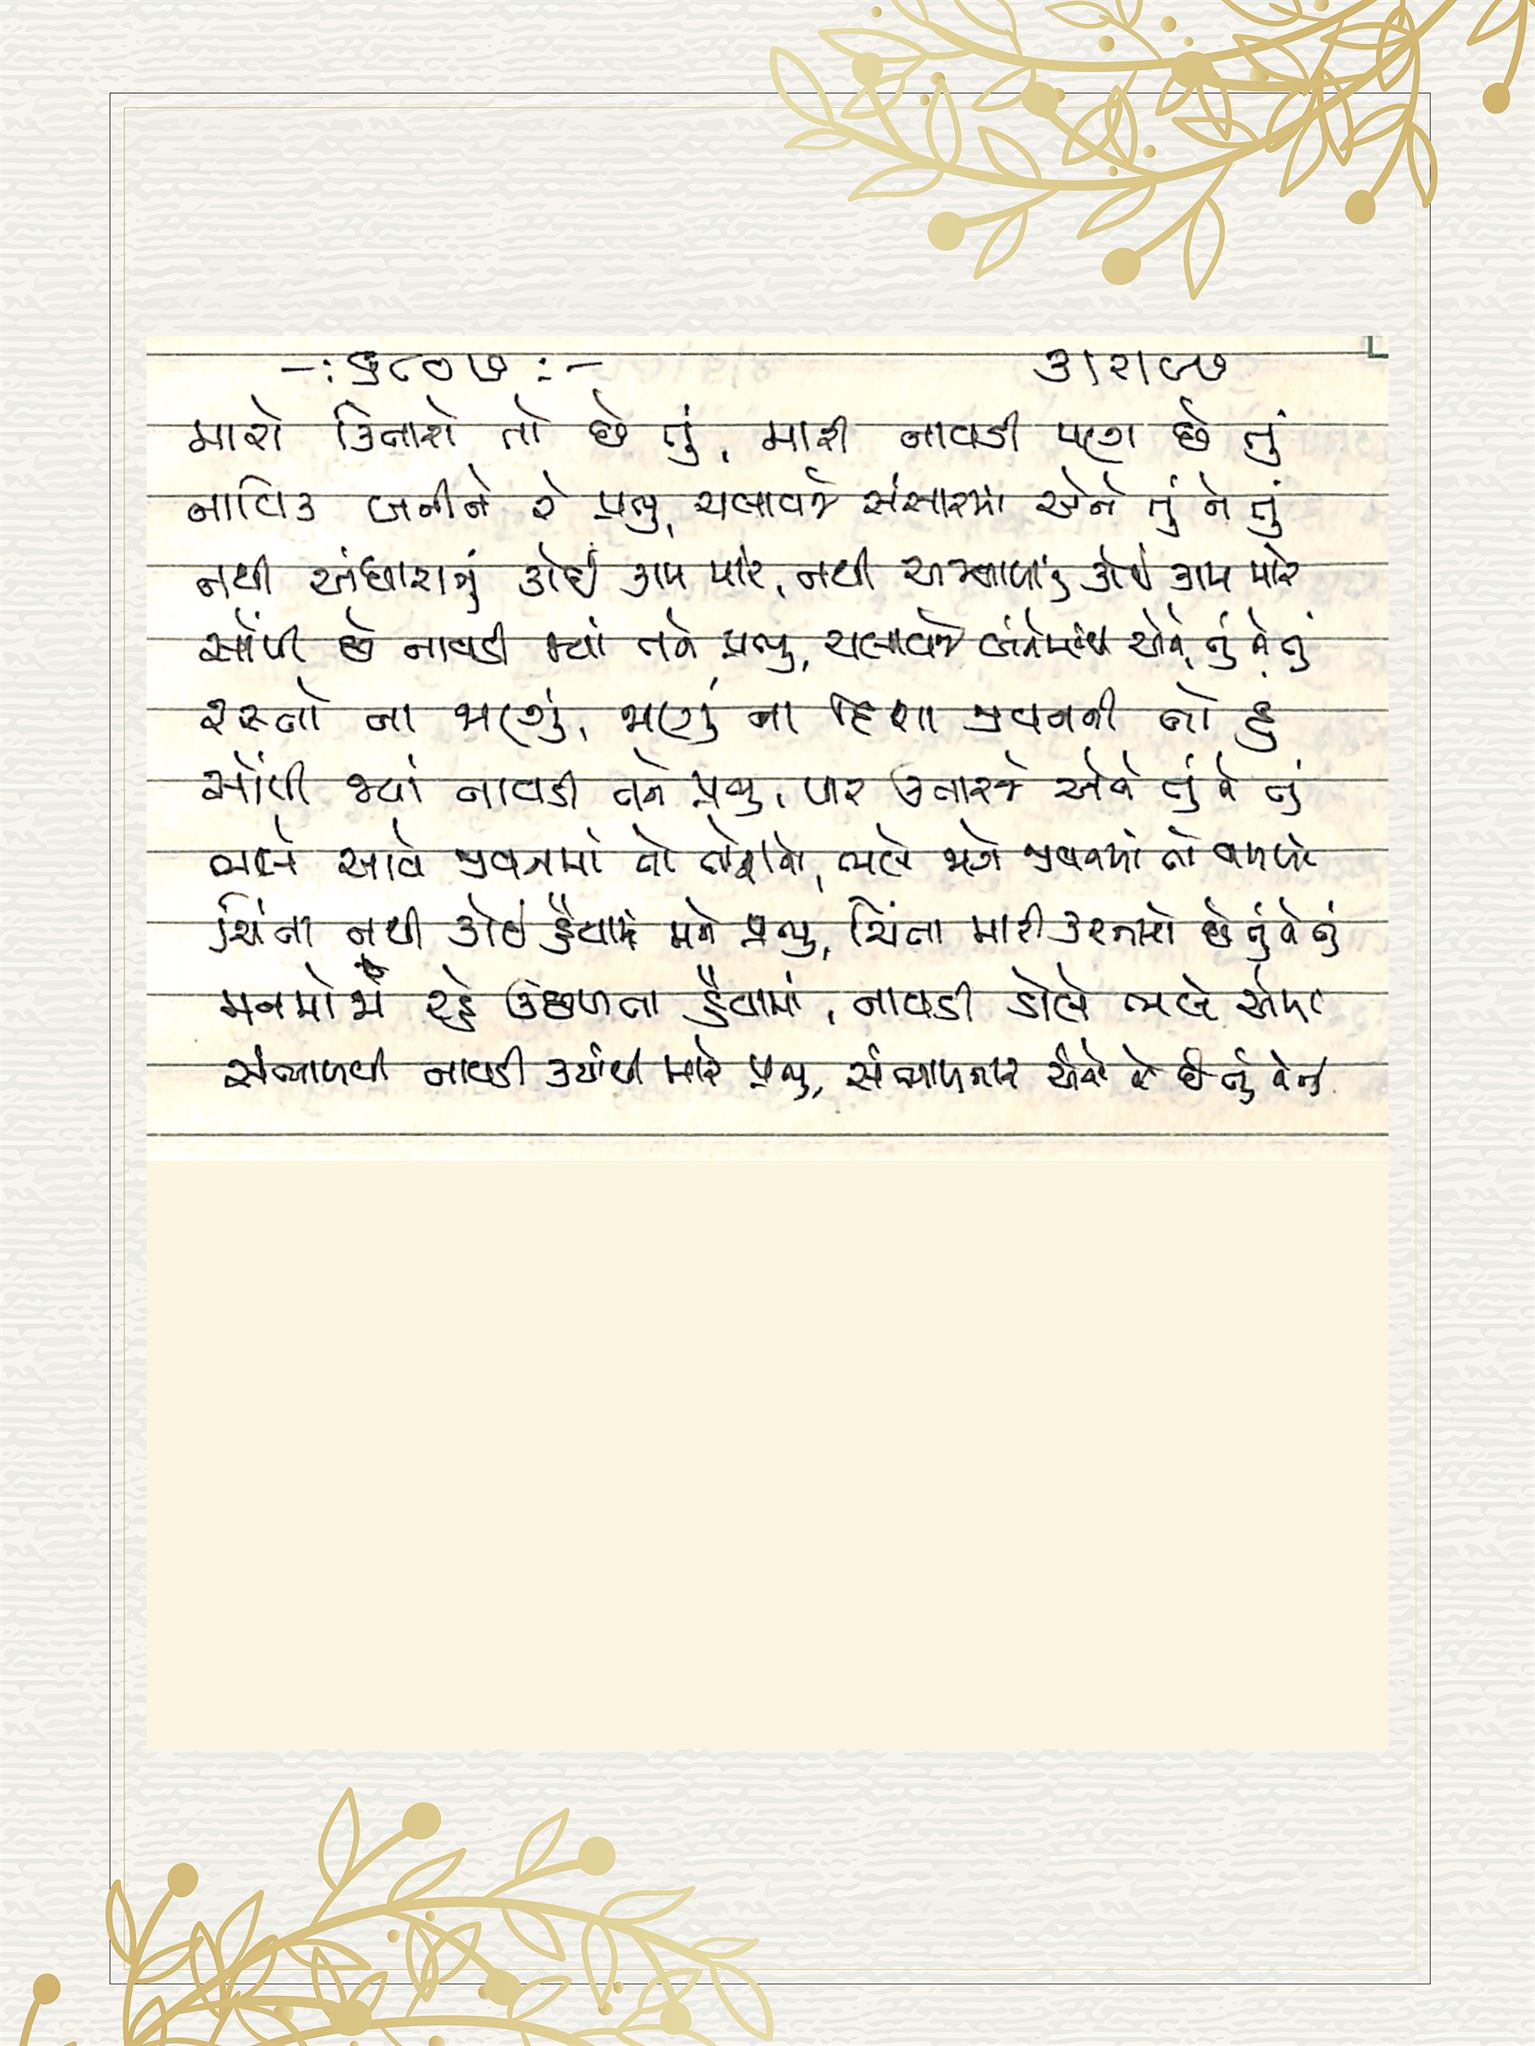 -: ૬૮૦૭ :- ૩।૨।૯૭
મારો કિનારો તો છે તું, મારી નાવડી પણ છે તું
નાવિક બનીને રે પ્રભુ, ચલાવજે સંસારમાં એને તું ને તું
નથી અંધારાનું કોઈ કામ મારે, નથી કોઈ કામ મારે
સોંપી છે નાવડી જ્યાં તને પ્રભુ, ચલાવજે એને તું ને તું
રસ્તો ના જાણું, જાણું ના દિશા જીવનની તો હું
સોંપી જ્યાં નાવડી તને પ્રભુ, પાર ઉતારજે એને તું ને તું
ભલે આવે જીવનમાં તો તોફાનો, ભલે જાગે જીવનમાં તો વમળો
ચિંતા નથી કોઈ હૈયામાં મને પ્રભુ, ચિંતા મારી કરનારો છે તું ને તું
મનમોજાં રહે ઉછળતા હૈયામાં, નાવડી ડોલે ભલે એમાં
સંભાળવી નાવડી ક્યાંથી મારે પ્રભુ, સંભાળનાર એનો તો છે તું ને તું